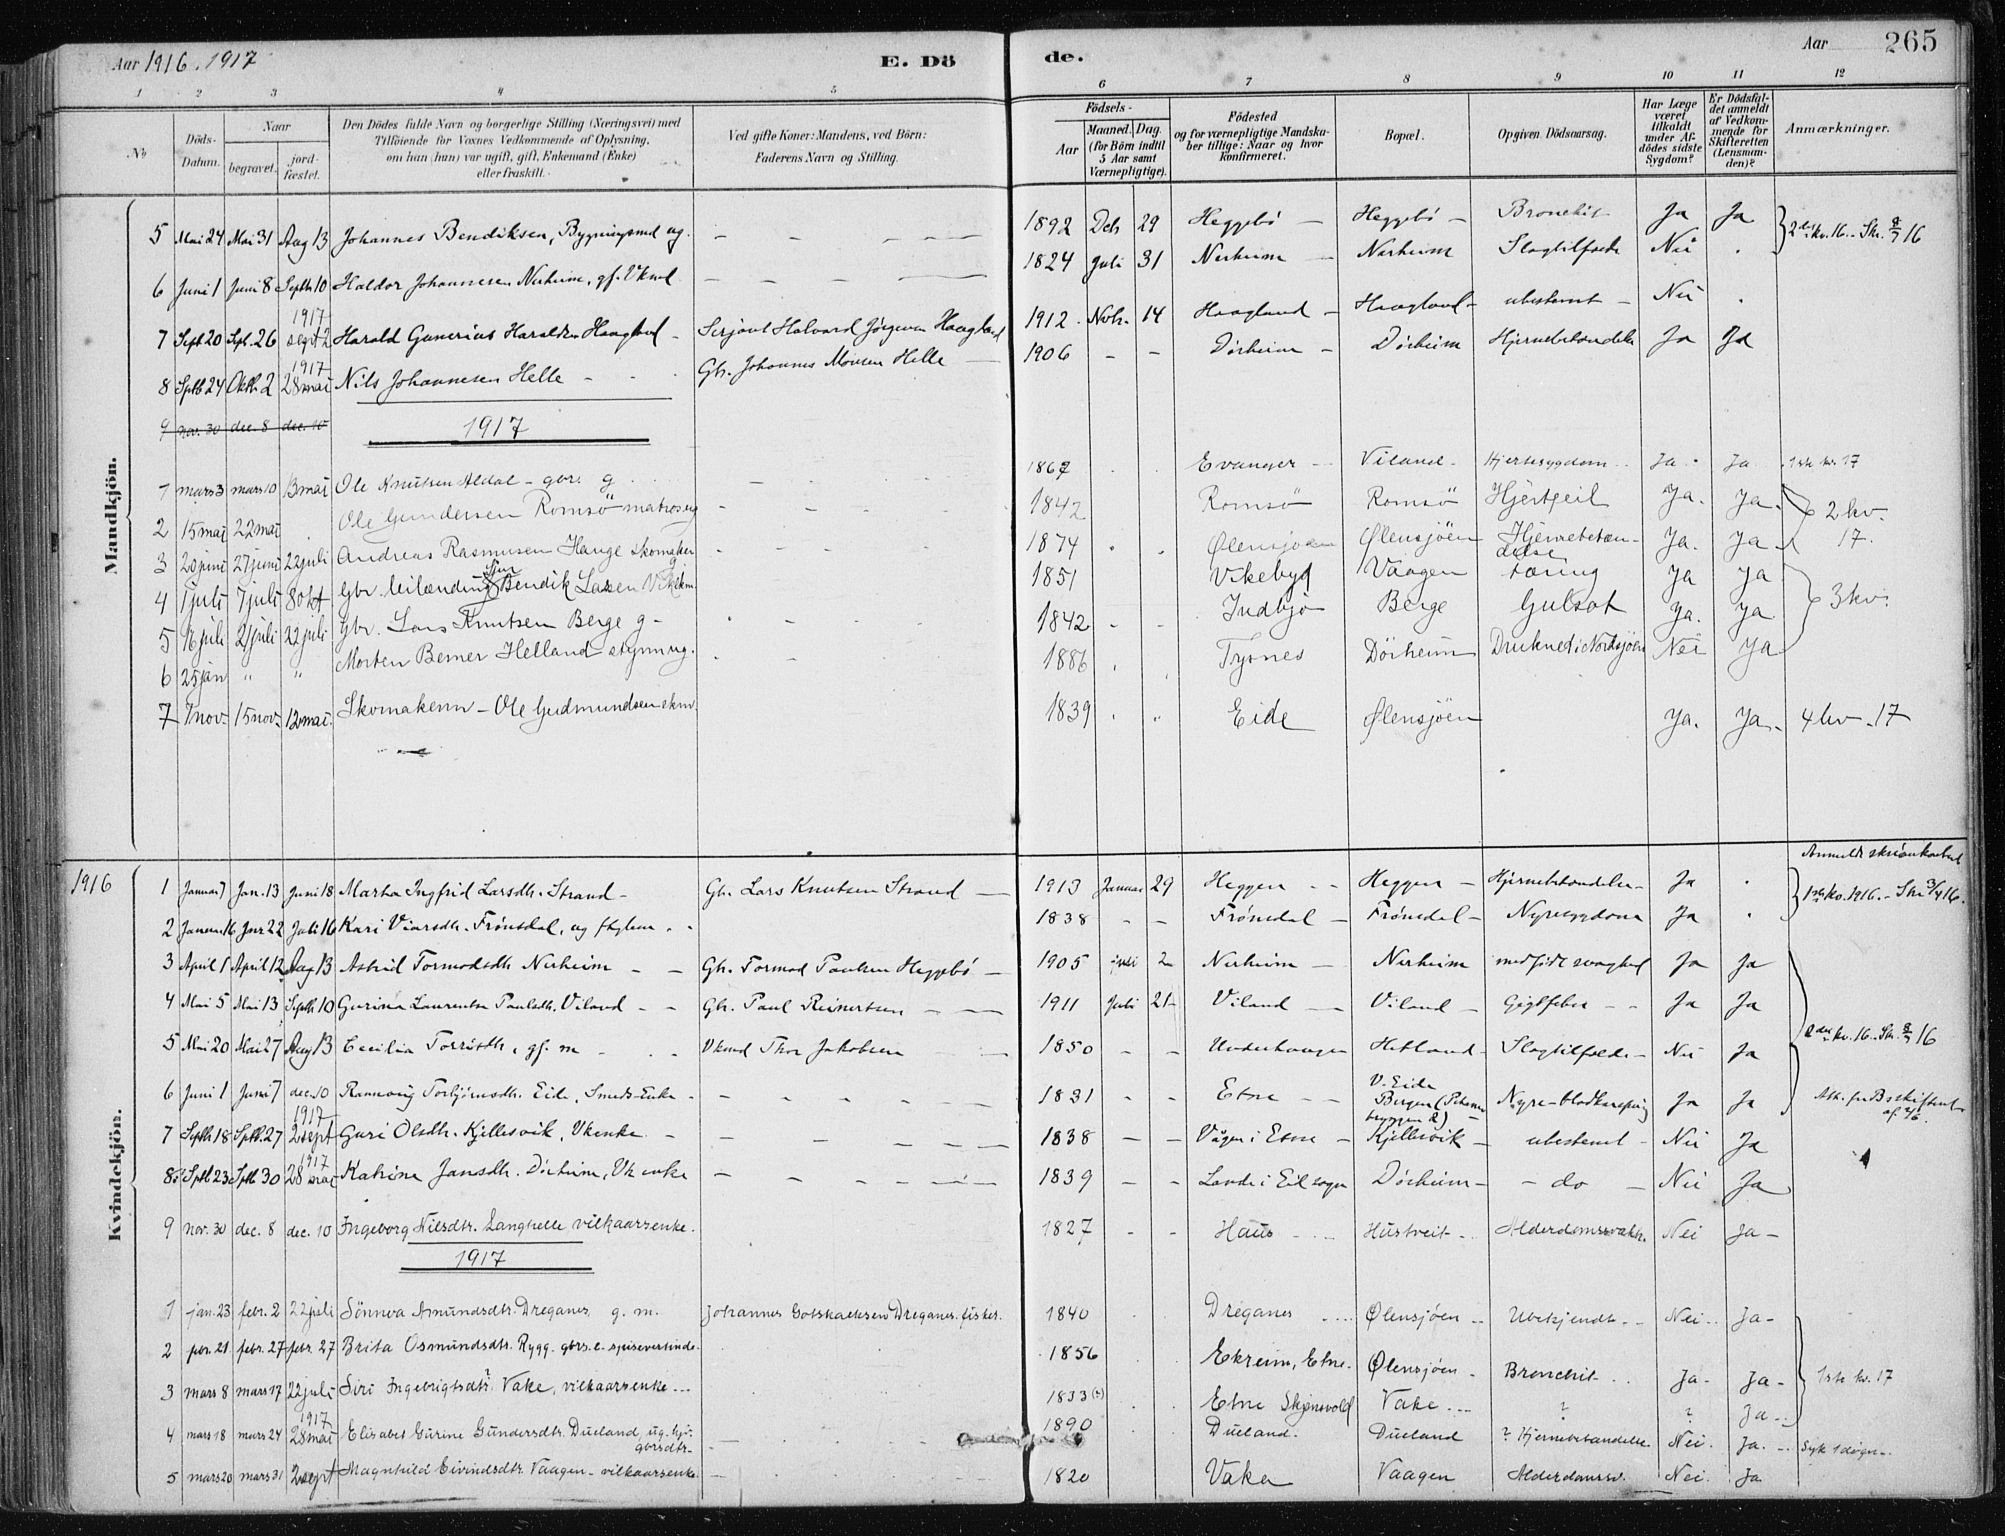 Aar 1916. 1917 E. Dö de. Aar 265
1 2 3 4 5 6 7 8 9 10 11 12
No
Döds-Datum.
Naar
begravet.
jord-fæstet.
Den Dödes fulde Navn og borgerlige Stilling (Næringsvei) med
Tilföiende for Voxnes Vedkommende af Oplysning,
om han (hun) var ugift, gift, Enkemand (Enke)
eller fraskilt.
Ved gifte Koner: Mandens, ved Börn:
Faderens Navn og Stilling.
Födsels-
Aar
Maaned. Dag.
(for Börn indtil
5 Aar samt
Værnepligtige).
Födested
og for værnepligtige Mandska-
ber tillige: Naar og hvor
konfirmeret.
Bopæl.
Opgiven Dödsaarsag.
Har Læge
været
tilkaldt
under Af-
dödes sidste
Sygdom?
Er Dödsfal-
det anmeldt
af Vedkom-
mende for
Skifteretten
(Lensman-
den)?
Anmærkninger.
Mandkjön.
5 Mai 24 Mai 31 Aug 13 Johannes Bendiksen, Bygningsmd ug. 1892 Dcb 29 Heggebö Heggebö Bronchit Ja Ja
6 Juni 1 Juni 8 Septb 10 Haldor Johannesen Nerheim, gf. Vkmd 1824 Juli 31 Nerheim Nerheim Slagtilfælde Nei 2det kv. 16. Skr. 8/7 16
7 Sept 20 Sept. 26 1917 sept 2 Harald Gunerius Haraldsen Haagland Serjant Halvard Jörgensen Haagland 1912 Novb. 14 Haagland Haagland ubestemt Nei
8 Septb 24 Oktb 2 1917 28 mai Nils Johannesen Helle Gbr. Johannes Monsen Helle 1906 Dörheim Dörheim Hjernebetændelse Ja Ja
9 nov. 30 dec. 8 dec. 10
1917
1 mars 3 mars 10 13 mai Ole Knutsen Aldal - gbr. g 1867 Evanger Viland Hjertesygdom Ja Ja 1ste kv. 17
2 15 mai 22 mai Ole Gundersen Romsö matros ug 1842 Romsö Romsö Hjertfeil Ja. Ja. 2 kv.
3 20 juni 27 juni 22 juli Andreas Rasmusen Hauge skomaker g 1874 Ølensjöen Ølensjöen Hjernebetæn-delse Ja. Ja 17.
4 1 juli 7 juli 8 okt Gbr. Bendik Larsen Vik ekm. 1851 Vikebygd Vaagen tæring Ja Ja
5 16 juli 21 juli 22 juli Gbr. Lars Knutsen Berge g - 1842 Indbjo Berge Gulsot Ja. Ja 3 kv.
6 25 jan " " Morten Berner Helland styrm ug. 1886 Tysnes Dörheim Druknet i Nordsjöen Nei Ja
7 7 nov. 15 nov. 12 mai. Skomakeren - Ole Gudmundsen ekm 1839 Eide Ølensjöen Ja. Ja. 4 kv. 17
Kvindekjön.
1916
Anmeldt
1 Januar 7 Jan. 13 Juni 18 Marta Ingfrid Larsdtr. Strand - Gbr. Lars Knutsen Strand 1913 Januar 29 Heggen Heggen Hjernebetændelse Ja 1ste kv. 1916. - Skr. 3/4 16.
2 Januar 16 Janr 22 Juli 16 Kari Viarsdtr. Frönsdal, ug 1838 Frönsdal Frönsdal Nyresygdom Ja
3 April 1 April 12 Aug 13 Astrid Tormodsdtr Nerheim Gbr. Tormod Paulsen Heggebö 1905 juli 2 Nerheim Nerheim medfödt svaghed Ja Ja
4 Mai 5 Mai 13 Septb 10 Gurina Laurentse Paulsdtr. Viland Gbr. Paul Reinertsen 1911 Juli 21 Viland Viland Gigtfeber Ja Ja
5 Mai 20 Mai 27 Aug 13 Cecilia Torrisdtr. gf. m Vkmd Thor Jakobsen 1850 Underhaugen Hetland Slagtilfælde Nei Ja 2det kv. 16. Skr. 8/7 16
6 Juni 1 Juni 7 dec. 10 Rannveig Torbjörnsdtr. Eide, Smeds Enke 1831 Etne V. Eide Bergen Nyre-blodkaspring Ja Ja
7 Septb 18 Septb. 27 1917 2 sept Guri Olsdtr. Kjellesvik, Vkenke 1838 Vågen i Etne Kjellesvik ubestemt Nei Ja
8 Septb 23 Septb 30 1917 28 mai Katrine Jansdtr. Dörheim, Vk enke 1839 Lande i Eid sogn Dörheim do Nei Ja
9 nov. 30 dec. 8 dec. 10 Ingeborg Nilsdtr. Langhelle vilkaarsenke. 1827 Haus Hustveit Alderdomssvakh. Nei Ja
1917
1 jan. 23 febr. 2 22 juli Sönneva Amundsdtr. Dreganes g. m. Johannes Gotskalksen Dreganes fisker. 1840 Dreganes Ølensjöen Ubekjendt Nei Ja
2 febr. 21 febr. 27 febr. 27 Brita Osmundsdtr. Rygg. gbrs. e. spisevertinde 1856 Ekreim, Etne. Ølensjöen Bronchit Ja Ja
3 mars 8 mars 17 22 juli Siri Ingebrigtsdtr? Vake, vilkaarsenke 1833 (?) Etne Skjensvold Vake ? ? Ja 1ste kv. 17
4 mars 18 mars 24 1917 28 mai Elisabet Gurine Gundersdtr. Dueland, ug. gbrsdtr. 1890 Dueland. Dueland ? Hjernebetændelse Nei. Ja. Syk 1 dögn
5 mars 20 mars 31 2 sept Magnhild Eivindsdtr. Vaagen - vilkaarsenke 1820 Vake Vaagen Alderdomssv. Nei. Ja